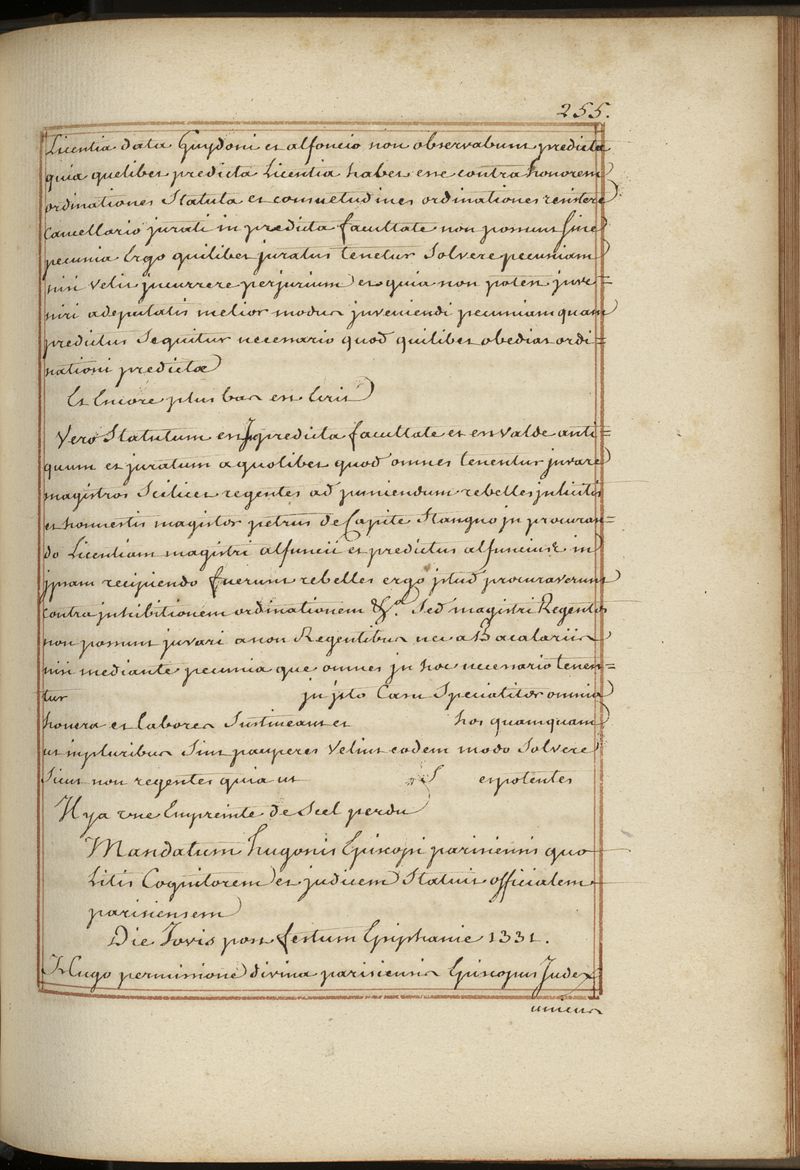 255.
Licentia data Guydoni et alfoncio non observabunt predicta
quia quelibet predicta Licentia habet esse contra honorem
ordinationes Statuta et consuetudines ordinationes resistere
Cancellario jurati in predicta facultate non possunt sine
pecunia Ergo quilibet juratus tenetur Solvere pecuniam
nisi velit jncurrere perjurium et quia non potest jnve=
niri adeputatis melior modus jnveniendi pecuniam quam
predictus Sequitur necessario quod quilibet obediat ordi=
nationi predictæ
Et Encore plus bas est Ecrit
Vero Statutum est Jn predicta facultate et est valde anti=
quum et juratum aquolibet quod omnes tenentur juvare
magistros Scilicet regentes ad puniendum rebelles jnlicitis
et honnestis magister petrus de Capite Stangno jn procuran=
do Licentiam magistri alfuncii et predictus alfuncius in
jpsam recipiendo fuerunt rebelles ergo jstud procuraverunt
contra jnhibitionem ordinationem &ª. Sed magistri Regentes
non possunt juvari anon Regentibus nec a Bacalariis
nisi mediante pecunia que omnes jn hoc necessario tenen=
tur jn jsto Casu Specialiter omnia
honera et labores Sustineant et hos quamquam
ut inpluribus Sint pauperes velint eodem modo Solvere
Sicut non regentes quia ut et potentes
Il ya une Empreinte de Scel perdu
Mandatum hugonis Episcopi parisiensis quo
Litis Cognitorem et judicem Statuit officialem
parisiensem
Die Jovis post festum Epiphanie 1331.
Hugo permissione divina parisiensis Episcopus Judex
unicus